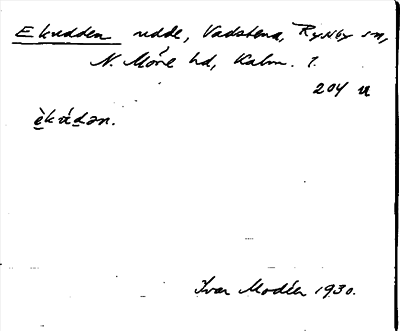 Ekudden udde, Vadstena, Ryssby sn,
N. Möre hd, Kalm. l.
204 u
èkúdən.
Ivar Modéer 1930.